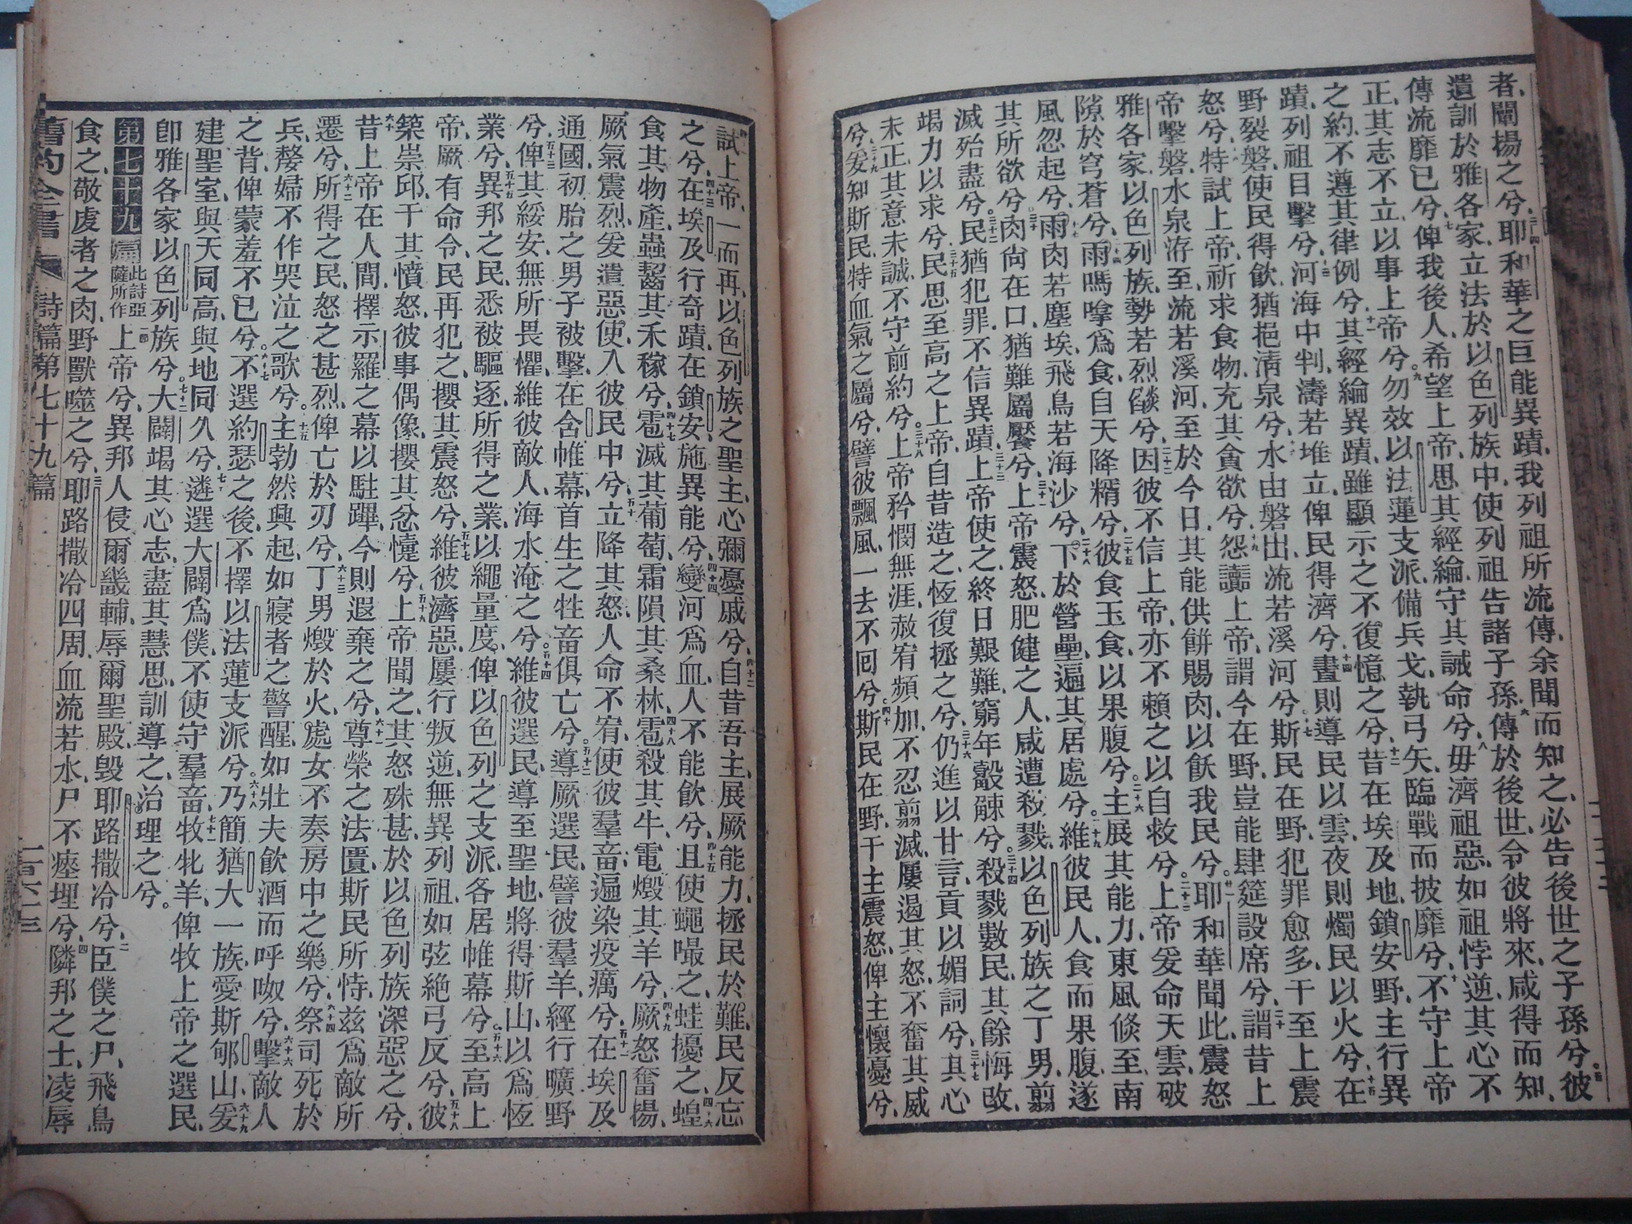 者闡揚之兮耶和華之巨能異蹟我列祖所流傳余聞而知之必告後世之子孫兮彼
遺訓於雅各家立法於以色列族中使列祖告諸子孫傳於後世令彼將來咸得而知
傳流靡已兮俾我後人希望上帝思其經綸守其誡命兮毋濟祖惡如祖悖逆其心不
正其志不立以事上帝兮勿效以法蓮支派備兵戈執弓矢臨戰而披靡兮不守上帝
之約不遵其律例兮其經綸異蹟雖顯示之不復憶之兮昔在埃及地鎖安野主行異
蹟列祖目擊兮河海中判濤若堆立俾民得濟兮晝則導民以雲夜則燭民以火兮在
野裂磐使民得飲猶挹淸泉兮水由磐出流若溪河兮斯民在野犯罪愈多干至上震
怒兮特試上帝祈求食物充其貪欲兮怨讟上帝謂今在野豈能肆筵設席兮謂昔上
帝擊磐水泉洊至流若溪河至於今日其能供餠賜肉以飫我民兮耶和華聞此震怒
雅各家以色列族勢若烈燄兮因彼不信上帝亦不賴之以自救兮上帝爰命天雲破
隙於穹蒼兮雨嗎嗱爲食自天降糈兮彼食玉食以果腹兮主展其能力東風倐至南
風忽起兮雨肉若塵埃飛鳥若海沙兮下於營壘遍其居處兮維彼民人食而果腹遂
其所欲兮肉尙在口猶難屬饜兮上帝震怒肥健之人咸遭殺戮以色列族之丁男翦
滅殆盡兮民猶犯罪不信異蹟上帝使之終日艱難窮年觳觫兮殺戮數民其餘悔改
竭力以求兮民思至高之上帝自昔造之恆復拯之兮仍進以甘言貢以媚詞兮其心
未正其意未誠不守前約兮上帝矜憫無涯赦宥頻加不忍翦滅屢遏其怒不奮其威
兮爰知斯民特血氣之屬兮譬彼飄風一去不囘兮斯民在野干主震怒俾主懷憂兮
試上帝一而再以色列族之聖主心彌憂戚兮自昔吾主展厥能力拯民於難民反忘
之兮在埃及行奇蹟在鎖安施異能兮變河爲血人不能飲兮且使蠅嘬之蛙擾之蝗
食其物產蟲齧其禾稼兮雹滅其葡萄霜隕其桑林雹殺其牛電燬其羊兮厥怒奮揚
厥氣震烈爰遣惡使入彼民中兮立降其怒人命不宥使彼羣畜遍染疫癘兮在埃及
通國初胎之男子被擊在含帷幕首生之牲畜俱亡兮導厥選民譬彼羣羊經行曠野
兮俾其綏安無所畏懼維彼敵人海水淹之兮維彼選民導至聖地將得斯山以爲恆
業兮異邦之民悉被驅逐所得之業以繩量度俾以色列之支派各居帷幕兮至高上
帝厥有命令民再犯之攖其震怒兮維彼濟惡屢行叛逆無異列祖如弦絕弓反兮彼
築崇邱干其憤怒彼事偶像攖其忿懥兮上帝聞之其怒殊甚於以色列族深惡之兮
昔上帝在人間擇示羅之幕以駐蹕今則遐棄之兮尊榮之法匱斯民所恃茲爲敵所
遷兮所得之民怒之甚烈俾亡於刃兮丁男燬於火處女不奏房中之樂兮祭司死於
兵嫠婦不作哭泣之歌兮主勃然興起如寢者之警醒如壯夫飲酒而呼呶兮擊敵人
之背俾蒙羞不已兮不選約瑟之後不擇以法蓮支派兮乃簡猶大一族愛斯郇山爰
建聖室與天同高與地同久兮遴選大闢爲僕不使守羣畜牧牝羊俾牧上帝之選民
卽雅各家以色列族兮大闢竭其心志盡其慧思訓導之治理之兮
第七十九篇 此詩亞薩所作 上帝兮異邦人侵爾畿輔辱爾聖殿毀耶路撒冷兮臣僕之尸飛鳥
食之敬虔者之肉野獸噬之兮耶路撒冷四周血流若水尸不瘞埋兮隣邦之士凌辱
舊約全書 詩篇第七十九篇